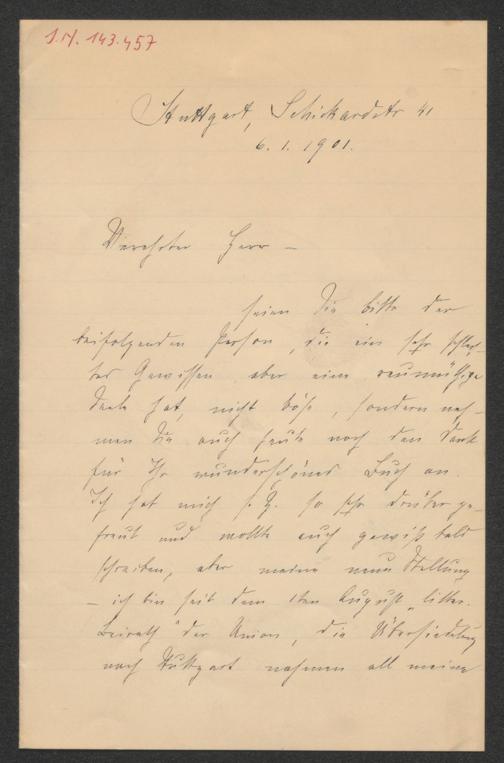 I.N. 143.457
Stuttgart, Schickardstr 41
6. 1. 1901.
Verehrter Herr –
seien Sie bitte der
beifolgenden Person, die ein sehr schlech-
tes Gewissen aber eine reumüthige
Seele hat, nicht böse, sondern neh-
men Sie auch heute noch den Dank
für Ihr wunderschönes Buch an.
Ich hat mich s. Z. so sehr drüber ge-
freut und wollte auch gewiß bald
schreiben, aber meine neue Stellung
– ich bin seit dem 1ten August „litter.
Beirath" der Union, die Übersiedelung
nach Stuttgart nahmen all meine